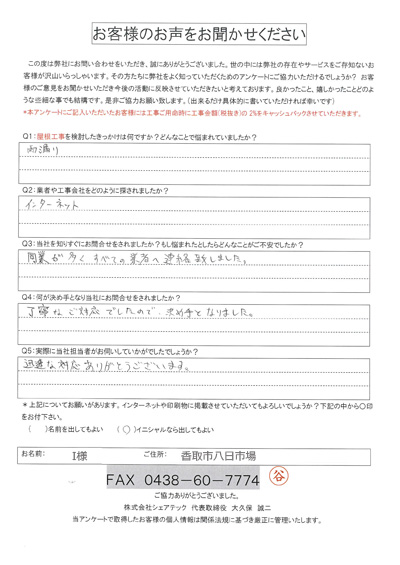 お客様のお声をお聞かせください
この度は弊社にお問い合わせをいただき、誠にありがとうございました。世の中には弊社の存在やサービスをご存知ないお
客様が沢山いらっしゃいます。その方たちに弊社をよく知っていただくためのアンケートにご協力いただけるでしょうか？ お客
様のご意見をお聞かせいただき今後の活動に反映させていただきたいと考えております。良かったこと、嬉しかったことどのよ
うな些細な事でも結構です。是非ご協力お願い致します。（出来るだけ具体的に書いていただければ幸いです）
*本アンケートにご記入いただいたお客様には工事ご用命時に工事金額(税抜き)の 2%をキャッシュバックさせていただきます。
Q1：屋根工事を検討したきっかけは何ですか？どんなことで悩まれていましたか？
雨漏り
Q2：業者や工事会社をどのように探されましたか？
インターネット
Q3：当社を知りすぐにお問合せをされましたか？もし悩まれたとしたらどんなことがご不安でしたか？
同業が多くすべての業者へ連絡致しました。
Q4：何が決め手となり当社にお問合せをされましたか？
丁寧なご対応でしたので、決め手となりました。
Q5：実際に当社担当者がお伺いしていかがでしたでしょうか？
迅速な対応ありがとうございます。
＊上記についてお願いがあります。インターネットや印刷物に掲載させていただいてもよろしいでしょうか？下記の中から〇印
をお付下さい。
（　）名前を出してもよい （〇）イニシャルなら出してもよい
お名前： I様 ご住所： 香取市八日市場
FAX 0438-60-7774 谷
ご協力ありがとうございました。
株式会社シェアテック 代表取締役 大久保 誠二
当アンケートで取得したお客様の個人情報は関係法規に基づき厳正に管理いたします。